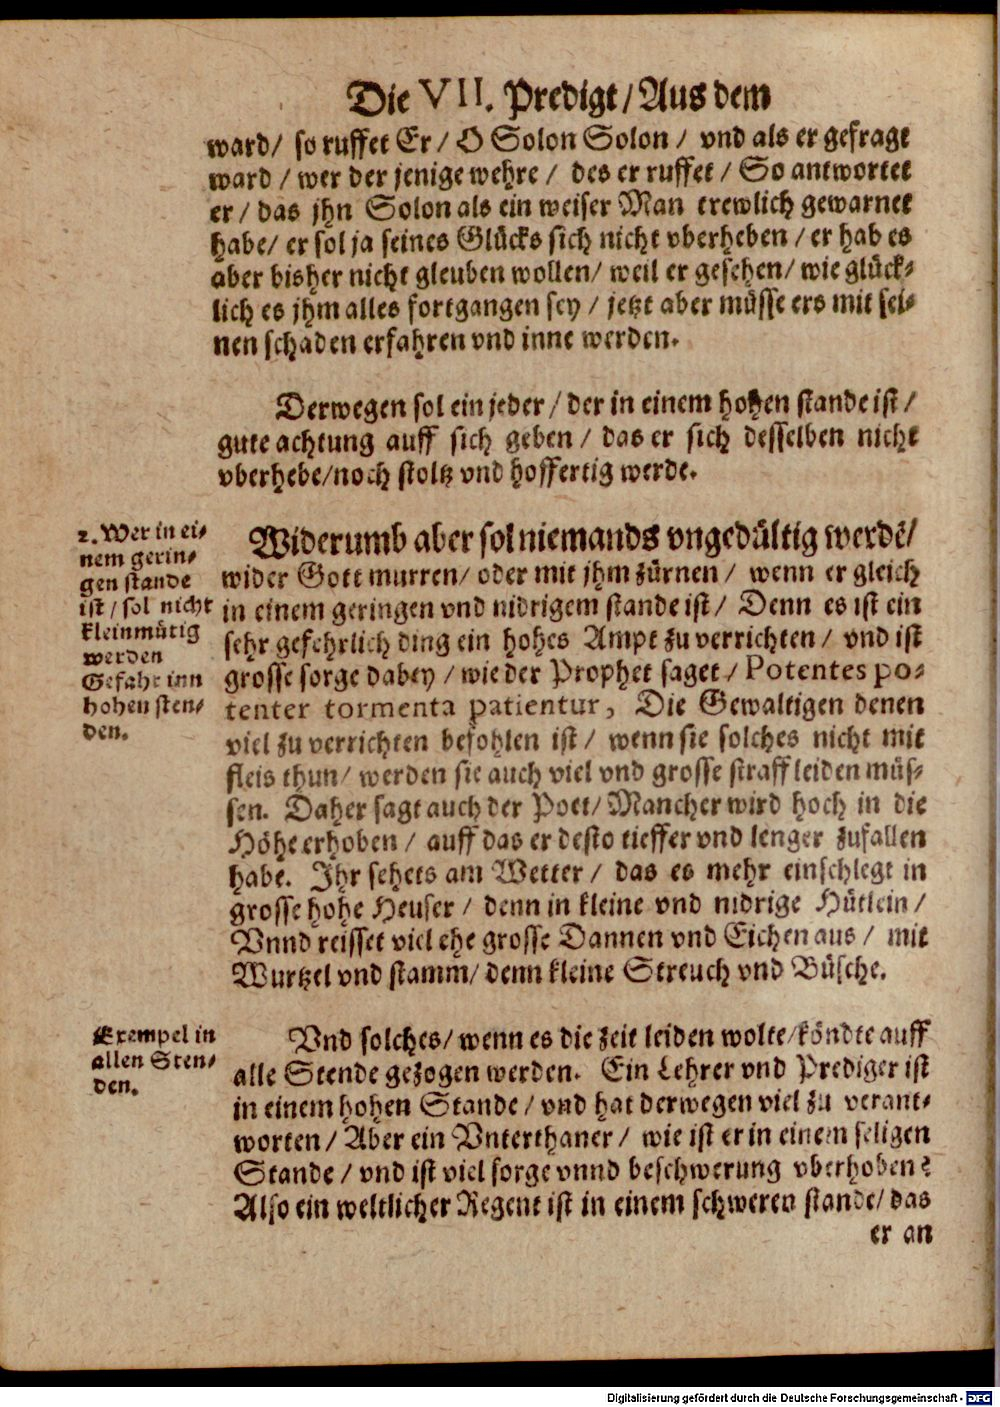 Die VII. Predigt / Aus dem
ward / so ruffet Er / O Solon Solon / vnd als er gefragt
ward / wer der jenige wehre / des er ruffet / So antwortet
er / das jhn Solon als ein weiser Man trewlich gewarnet
habe / er sol ja seines Glücks sich nicht vberheben / er hab es
aber bisher nicht gleuben wollen / weil er gesehen / wie glück-
lich es jhm alles fortgangen sey / jetzt aber müsse ers mit sei-
nen schaden erfahren vnd inne werden.
Derwegen sol ein jeder / der in einem hohen stande ist /
gute achtung auff sich geben / das er sich desselben nicht
vberhebe / noch stoltz vnd hoffertig werde.
2. Wer in ei-
nem gerin-
gen stande
ist / sol nicht
kleinmütig
werden
Gefahr inn
hohen sten-
den.
Widerumb aber sol niemands vngedültig werdē /
wider Gott murren / oder mit jhm zürnen / wenn er gleich
in einem geringen vnd nidrigem stande ist / Denn es ist ein
sehr gefehrlich ding ein hohes Ampt zu verrichten / vnd ist
grosse sorge dabey / wie der Prophet saget / Potentes po-
tenter tormenta patientur, Die Gewaltigen denen
viel zu verrichten befohlen ist / wenn sie solches nicht mit
fleis thun / werden sie auch viel vnd grosse straff leiden müs-
sen. Daher sagt auch der Poet / Mancher wird hoch in die
Höhe erhoben / auff das er desto tieffer vnd lenger zufallen
habe. Ihr sehets am Wetter / das es mehr einschlegt in
grosse hohe Heuser / denn in kleine vnd nidrige Hütlein /
Vnnd reisset viel ehe grosse Dannen vnd Eichen aus / mit
Wurtzel vnd stamm / denn kleine Streuch vnd Büsche.
Exempel in
allen Sten-
den.
Vnd solches / wenn es die zeit leiden wolte / köndte auff
alle Stende gezogen werden. Ein Lehrer vnd Prediger ist
in einem hohen Stande / vnd hat derwegen viel zu verant-
worten / Aber ein Vnterthaner / wie ist er in einem seligen
Stande / vnd ist viel sorge vnnd beschwerung vberhoben?
Also ein weltlicher Regent ist in einem schweren stande / das
er an
Digitalisierung gefördert durch die Deutsche Forschungsgemeinschaft - DFG